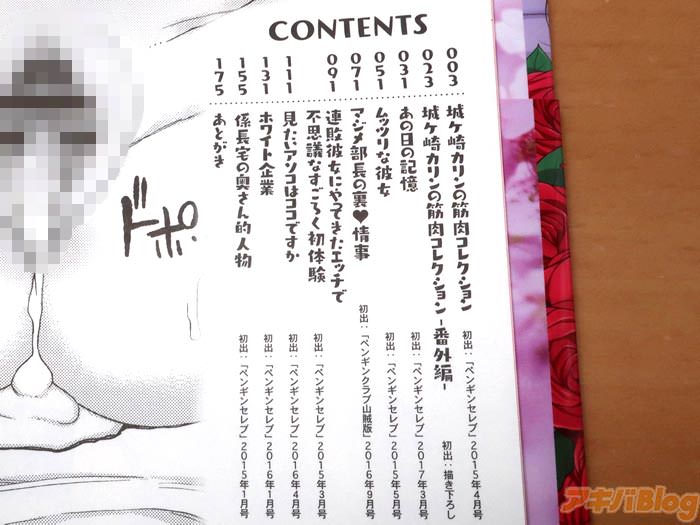 CONTENTS
003 城ヶ崎カリンの筋肉コレクション 初出：「ペンギンセレブ」2015年4月号
023 城ヶ崎カリンの筋肉コレクション-番外編- 初出：描き下ろし
031 あの日の記憶 初出：「ペンギンセレブ」2017年3月号
051 ムッツリな彼女 初出：「ペンギンセレブ」2015年5月号
071 マジメ部長の裏♥情事 初出：「ペンギンクラブ山賊版」2016年9月号
091 連敗彼女にやってきたエッチで
不思議なすごろく初体験 初出：「ペンギンセレブ」2015年3月号
111 見たいアソコはココですか 初出：「ペンギンセレブ」2016年4月号
131 ホワイト企業 初出：「ペンギンセレブ」2016年1月号
155 係長宅の奥さん的人物 初出：「ペンギンセレブ」2015年1月号
175 あとがき
ドポ
アキバBlog